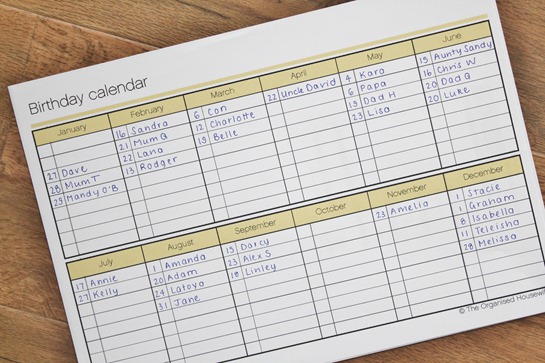 Birthday calendar
January
27 Dave
28 Mum T
29 Mandy O'B
February
16 Sandra
21 Mum Q
22 Lana
13 Rodger
March
6 Con
12 Charlotte
19 Belle
April
22 Uncle David
May
4 Kara
6 Papa
19 Dad H
23 Lisa
June
15 Aunty Sandy
16 Chris W
20 Dad Q
20 Luke
July
17 Annie
27 Kelly
August
1 Amanda
20 Adam
24 Latoya
31 Jane
September
15 Darcy
23 Alex S
18 Linley
October
November
23 Amelia
December
1 Stacie
1 Graham
8 Isabella
11 Teleisha
28 Melissa
© The Organised Housewife